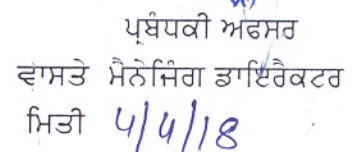 ਪ੍ਰਬੰਧਕੀ ਅਫਸਰ
ਵਾਸਤੇ ਮੈਨੇਜਿੰਗ ਡਾਇਰੈਕਟਰ
ਮਿਤੀ 4/4/18